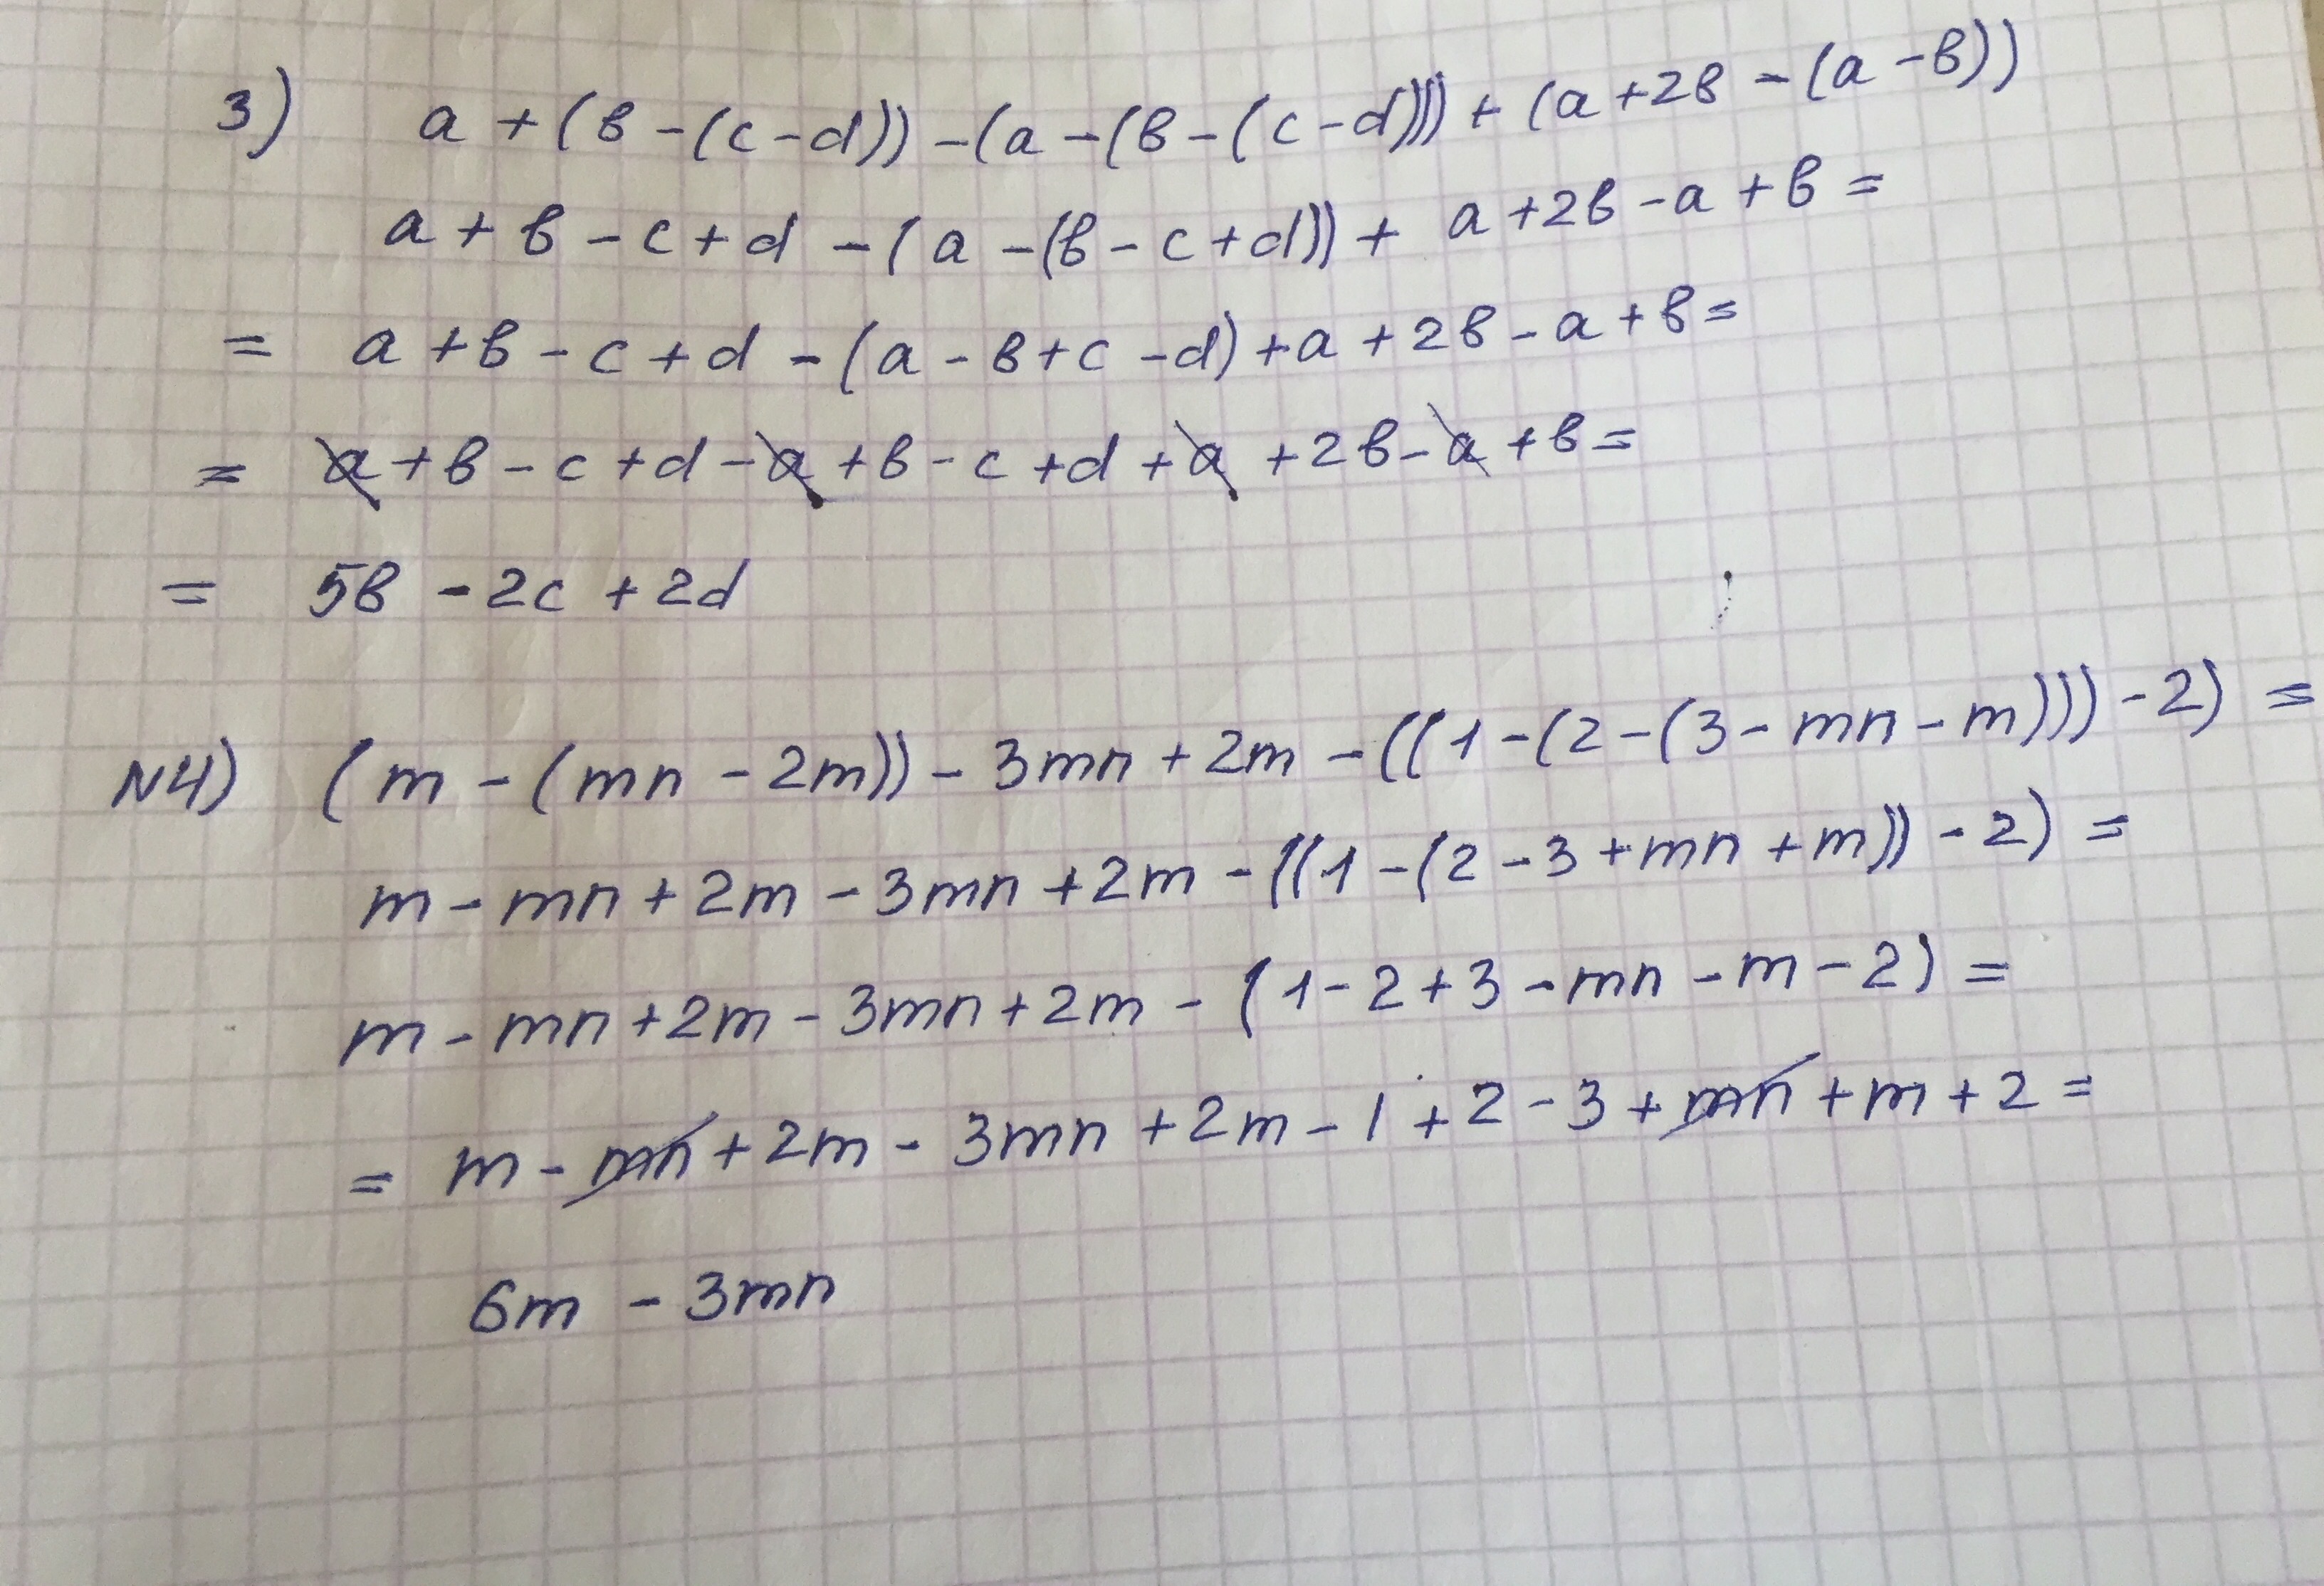 3) a + (в - (c - d)) - (a - (в - (c - d))) + (a + 2в - (a - в))
a + в - c + d - (a - (в - c + d)) + a + 2в - a + в =
= a + в - c + d - (a - в + c - d) + a + 2в - a + в =
= a + в - c + d - a + в - c + d + a + 2в - a + в =
= 5в - 2c + 2d
N4) (m - (mn - 2m)) - 3mn + 2m - ((1 - (2 - (3 - mn - m))) - 2) =
m - mn + 2m - 3mn + 2m - ((1 - (2 - 3 + mn + m)) - 2) =
m - mn + 2m - 3mn + 2m - (1 - 2 + 3 - mn - m - 2) =
= m - mn + 2m - 3mn + 2m - 1 + 2 - 3 + mn + m + 2 =
6m - 3mn